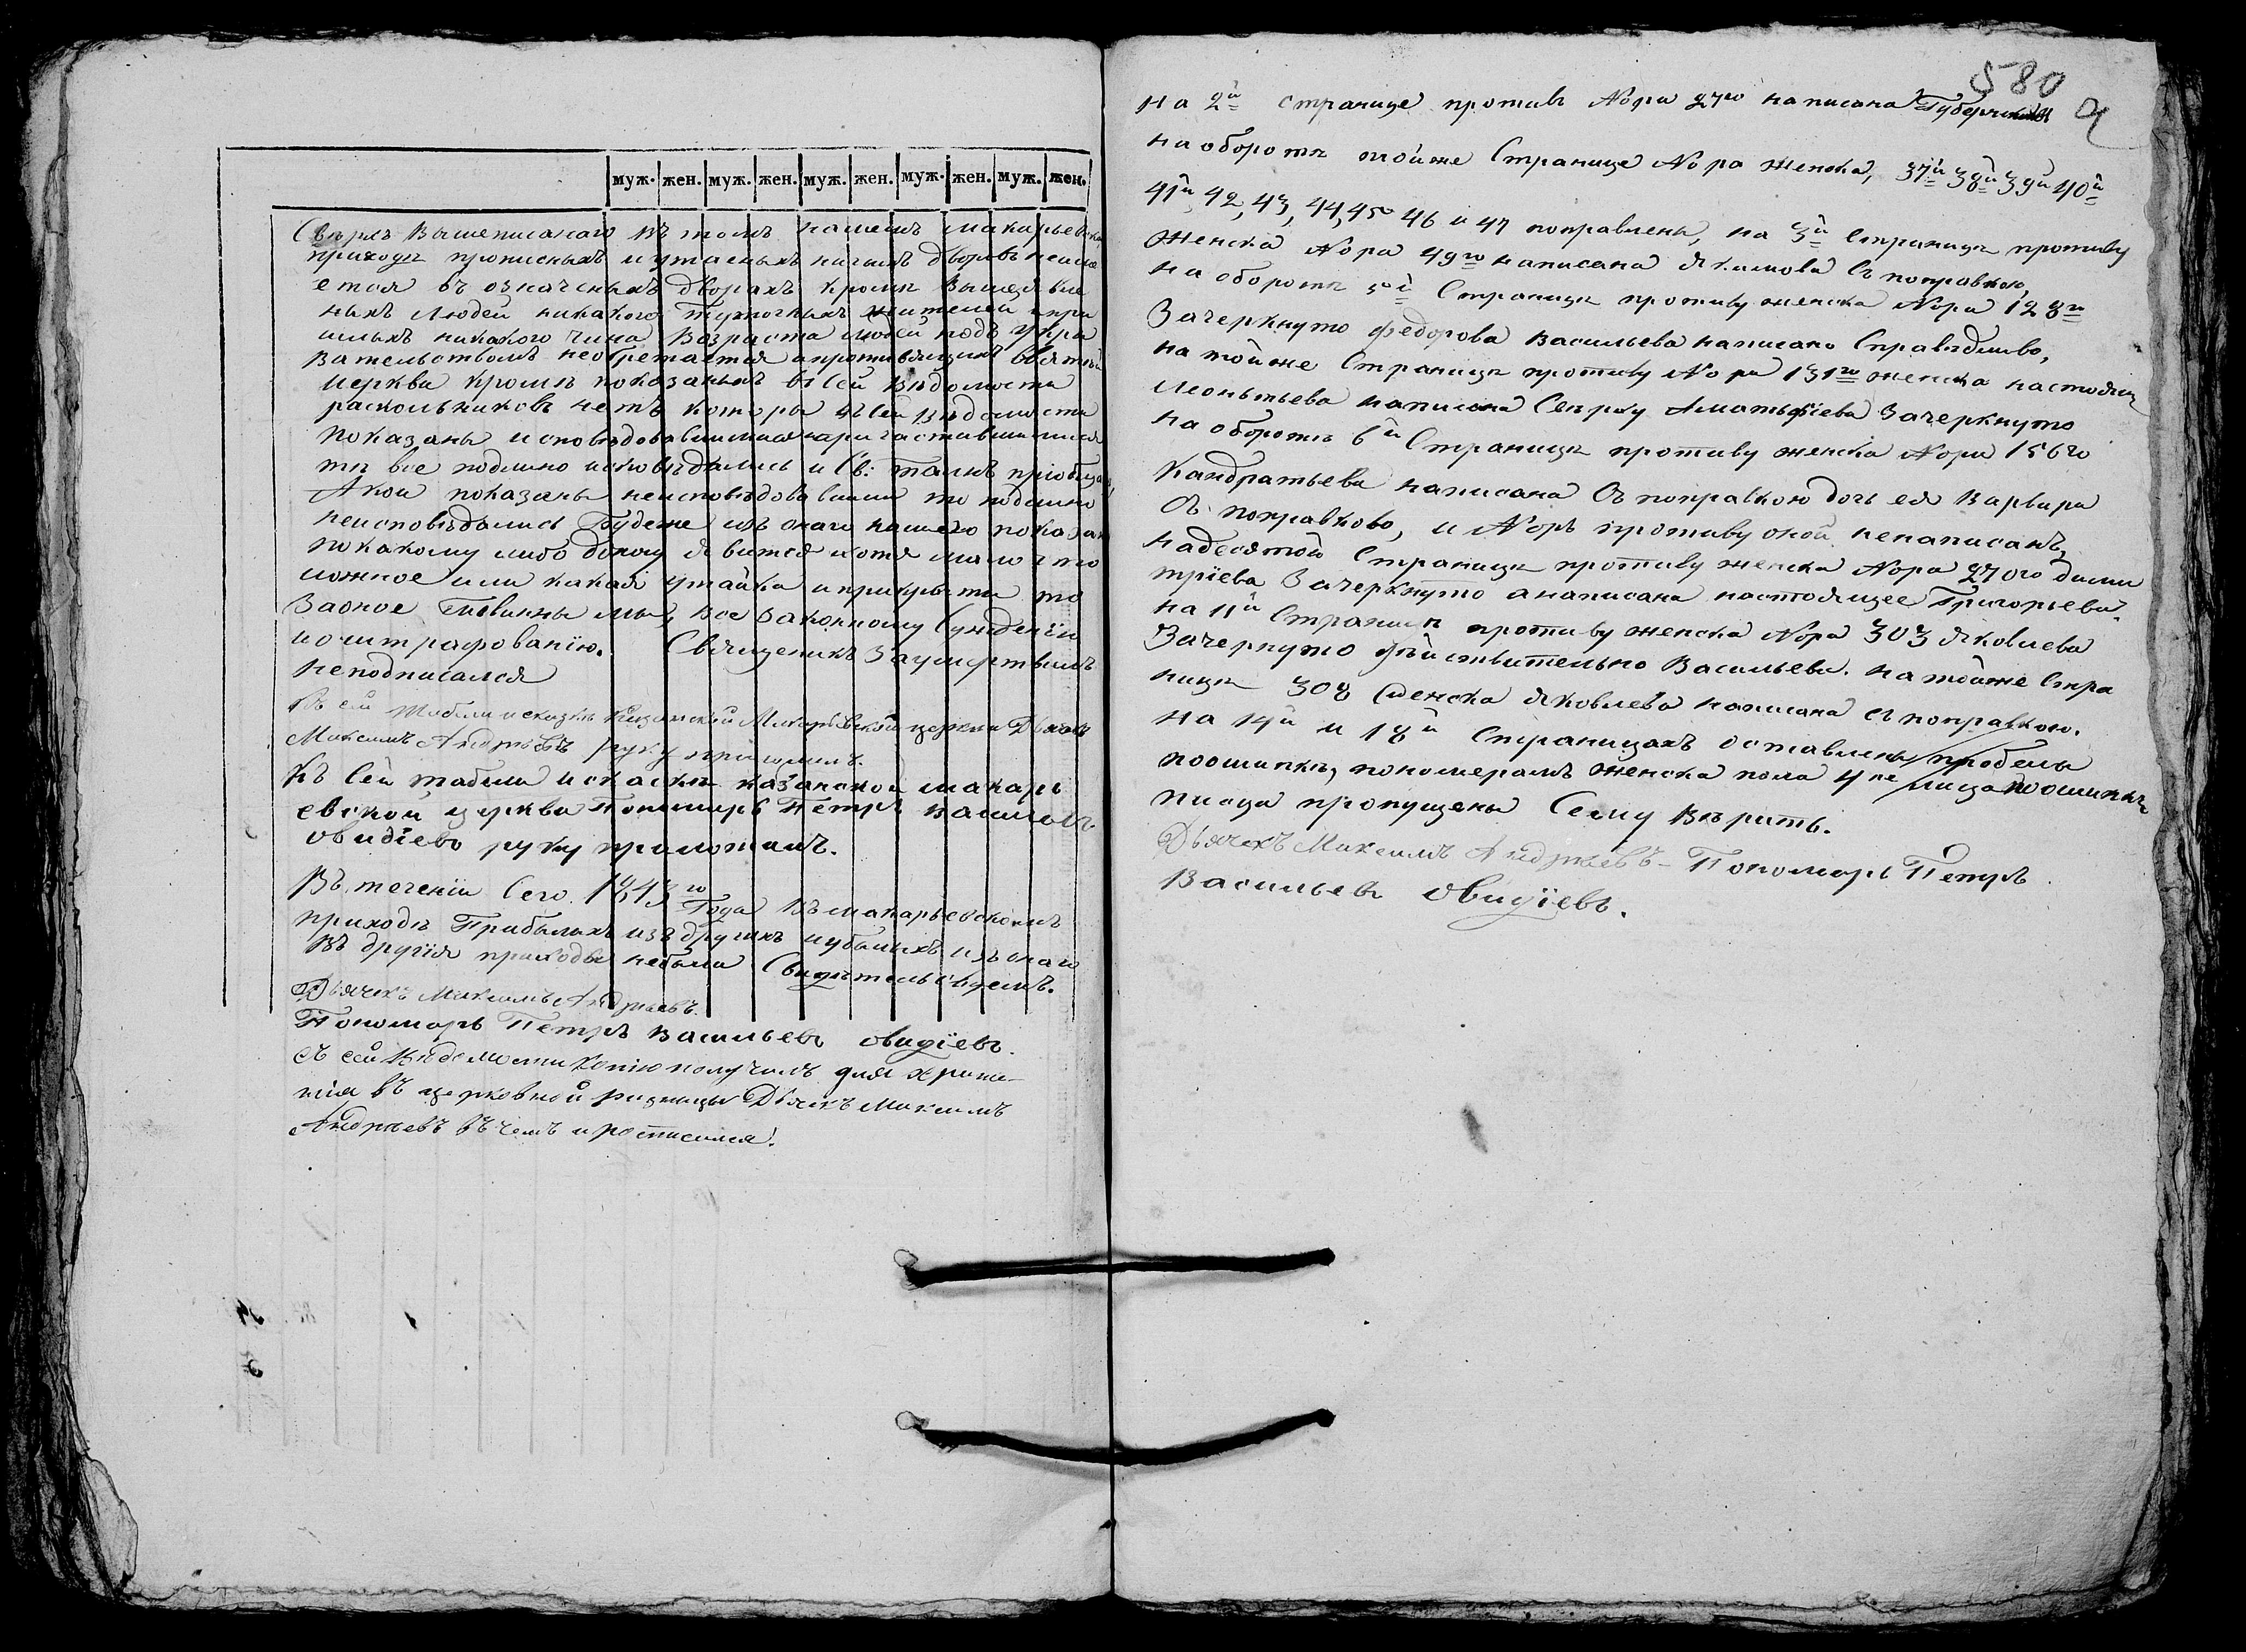 муж. жен. муж. жен. муж. жен. муж. жен. муж. жен.
Сверхъ вышеписанаго въ томъ нашемъ макарьевском
приходе прописныхъ и утаеныхъ ничьихъ дворовъ неиме
ется въ означеныхъ дворахъ кроме вышеявле
ныхъ людей никакого тутошныхъ жителей и при
шлыхъ никакого чина возраста людей подъ укры
вательствомъ необретается и противящихся святой
церкви кроме показаныхъ въ сей вѣдомости
раскольниковъ нетъ которы въ сей вѣдомости
показаны исповѣдовавшимися и причастившимися
тѣ все подлино исповѣдались и Св: таинъ приобщал
А кои показаны неисповѣдовавшими то подлино
неисповѣдались Будеже изъ онаго нашего показан
по какому либо доносу явится хотя мало что
ложное или какая утайка и прикрыти то
за оное повинны мы, все законному сужденiю
и оштрафованiю. Священикъ за умертвiемъ
неподписался
Къ сей табели и сказкѣ Казанской Макарьевской церкви Дьячекъ
Максимъ Андрѣевъ руку приложилъ.
Къ Сей табели и скаски казанской макарь
евской церкви пономарь Петръ Васильевъ
Овидiевъ руку приложилъ.
Въ теченiи Сего 1843го Года въ макарьевскомъ
приходѣ Прибылыхъ изъ другихъ и убылыхъ изъ онаго
въ другiя приходы небыли Свидѣтельствуемъ.
Дьячекъ Максимъ Андрѣевъ.
Пономарь Петръ Васильевъ Овидiевъ.
съ сей вѣдомости копiю получилъ для хране-
нiя въ церковной ризницы Дьячекъ Максимъ
Андрѣевъ въ чемъ и росписался.
580
на 2й странице противъ Nора 27го написана
на оборотѣ тойже Странице Nора женска, 37й 38й 39й 40й
41й, 42, 43, 44, 45 46 и 47 поправлены, на 3й Страницѣ противу
женска Nора 49го написана Якимова Съ поправкою,
на оборотѣ 5й Страницы противу женска Nора 128го
Зачеркнуто Федорова Васильева написано Справедливо,
на тойже Страницѣ противу Nора 131го женска настоящ
Леонтьева написана Сверху Аматьфiева Зачеркнуто
на оборотѣ 6й Страницы противу женска Nора 156го
Кандратьева написана Съ поправкою дочь ея Варвара
Съ поправково, и Nоръ противу оной ненаписанъ,
надесятой Страницы противу женска Nора 270го дими
трiева Зачеркнуто а написана настоящее Григорьева.
на 11й Страницѣ противу женска Nора 303 Яковлева
Зачеркнуто действительно Васильева. на тойже Стра
ницѣ 308 женска Яковлева написана съ поправкою.
На 14й и 18й Страницахъ оставлены пробелы
поошипкѣ, пономерамъ женска пола 4ре лица поошипкѣ
писца пропущены Сему верить.
Дьячекъ Максимъ Андрѣевъ- Пономарь Петръ
Васильевъ Овидiевъ.